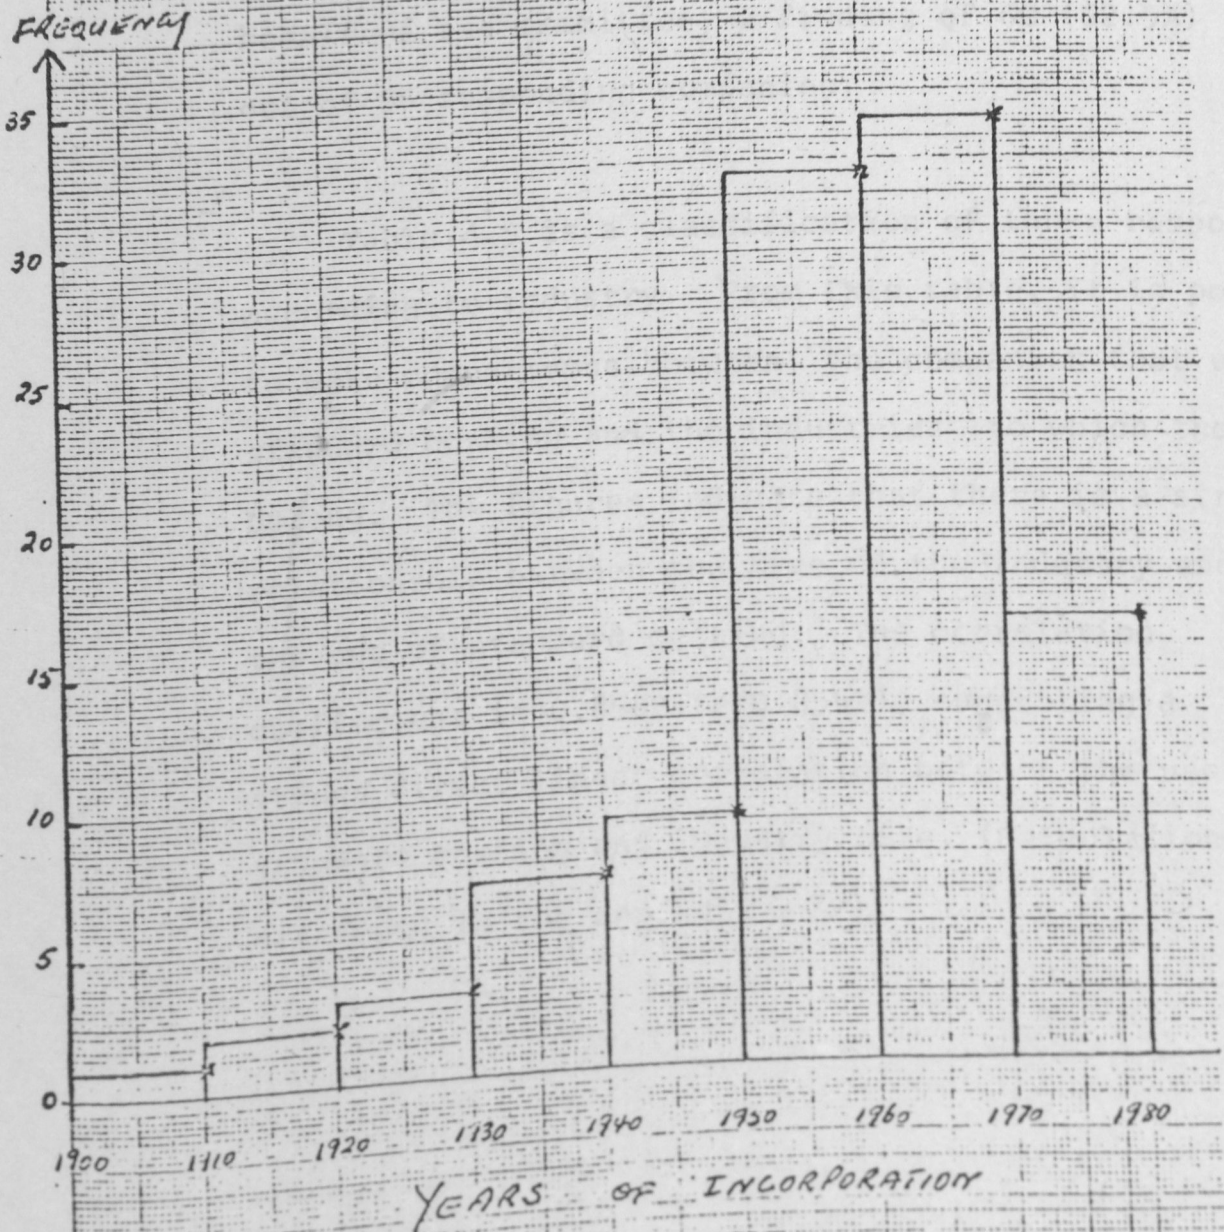 FREQUENCY
35
30
25
20
15
10
5
0
1900 1910 1920 1930 1940 1950 1960 1970 1980
YEARS OF INCORPORATION